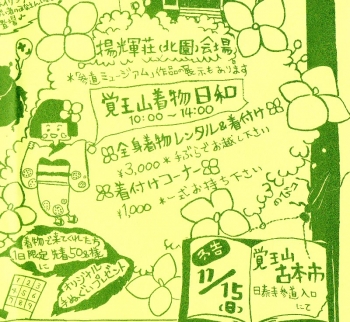 揚輝荘(北園)会場
*「参道ミュージアム」作品の展示もあります
覚王山着物日和
10:00~14:00
全身着物レンタル&着付け
¥3,000 *手ぶらでお越し下さい
着付けコーナー
¥1,000 *一式お持ち下さい
着物で来てくれた方
1日限定 先着50名様
に
オリジナル
手ぬぐいプレゼント
予告
11/15(日)
覚王山
古本市
日泰寺参道入口
にて